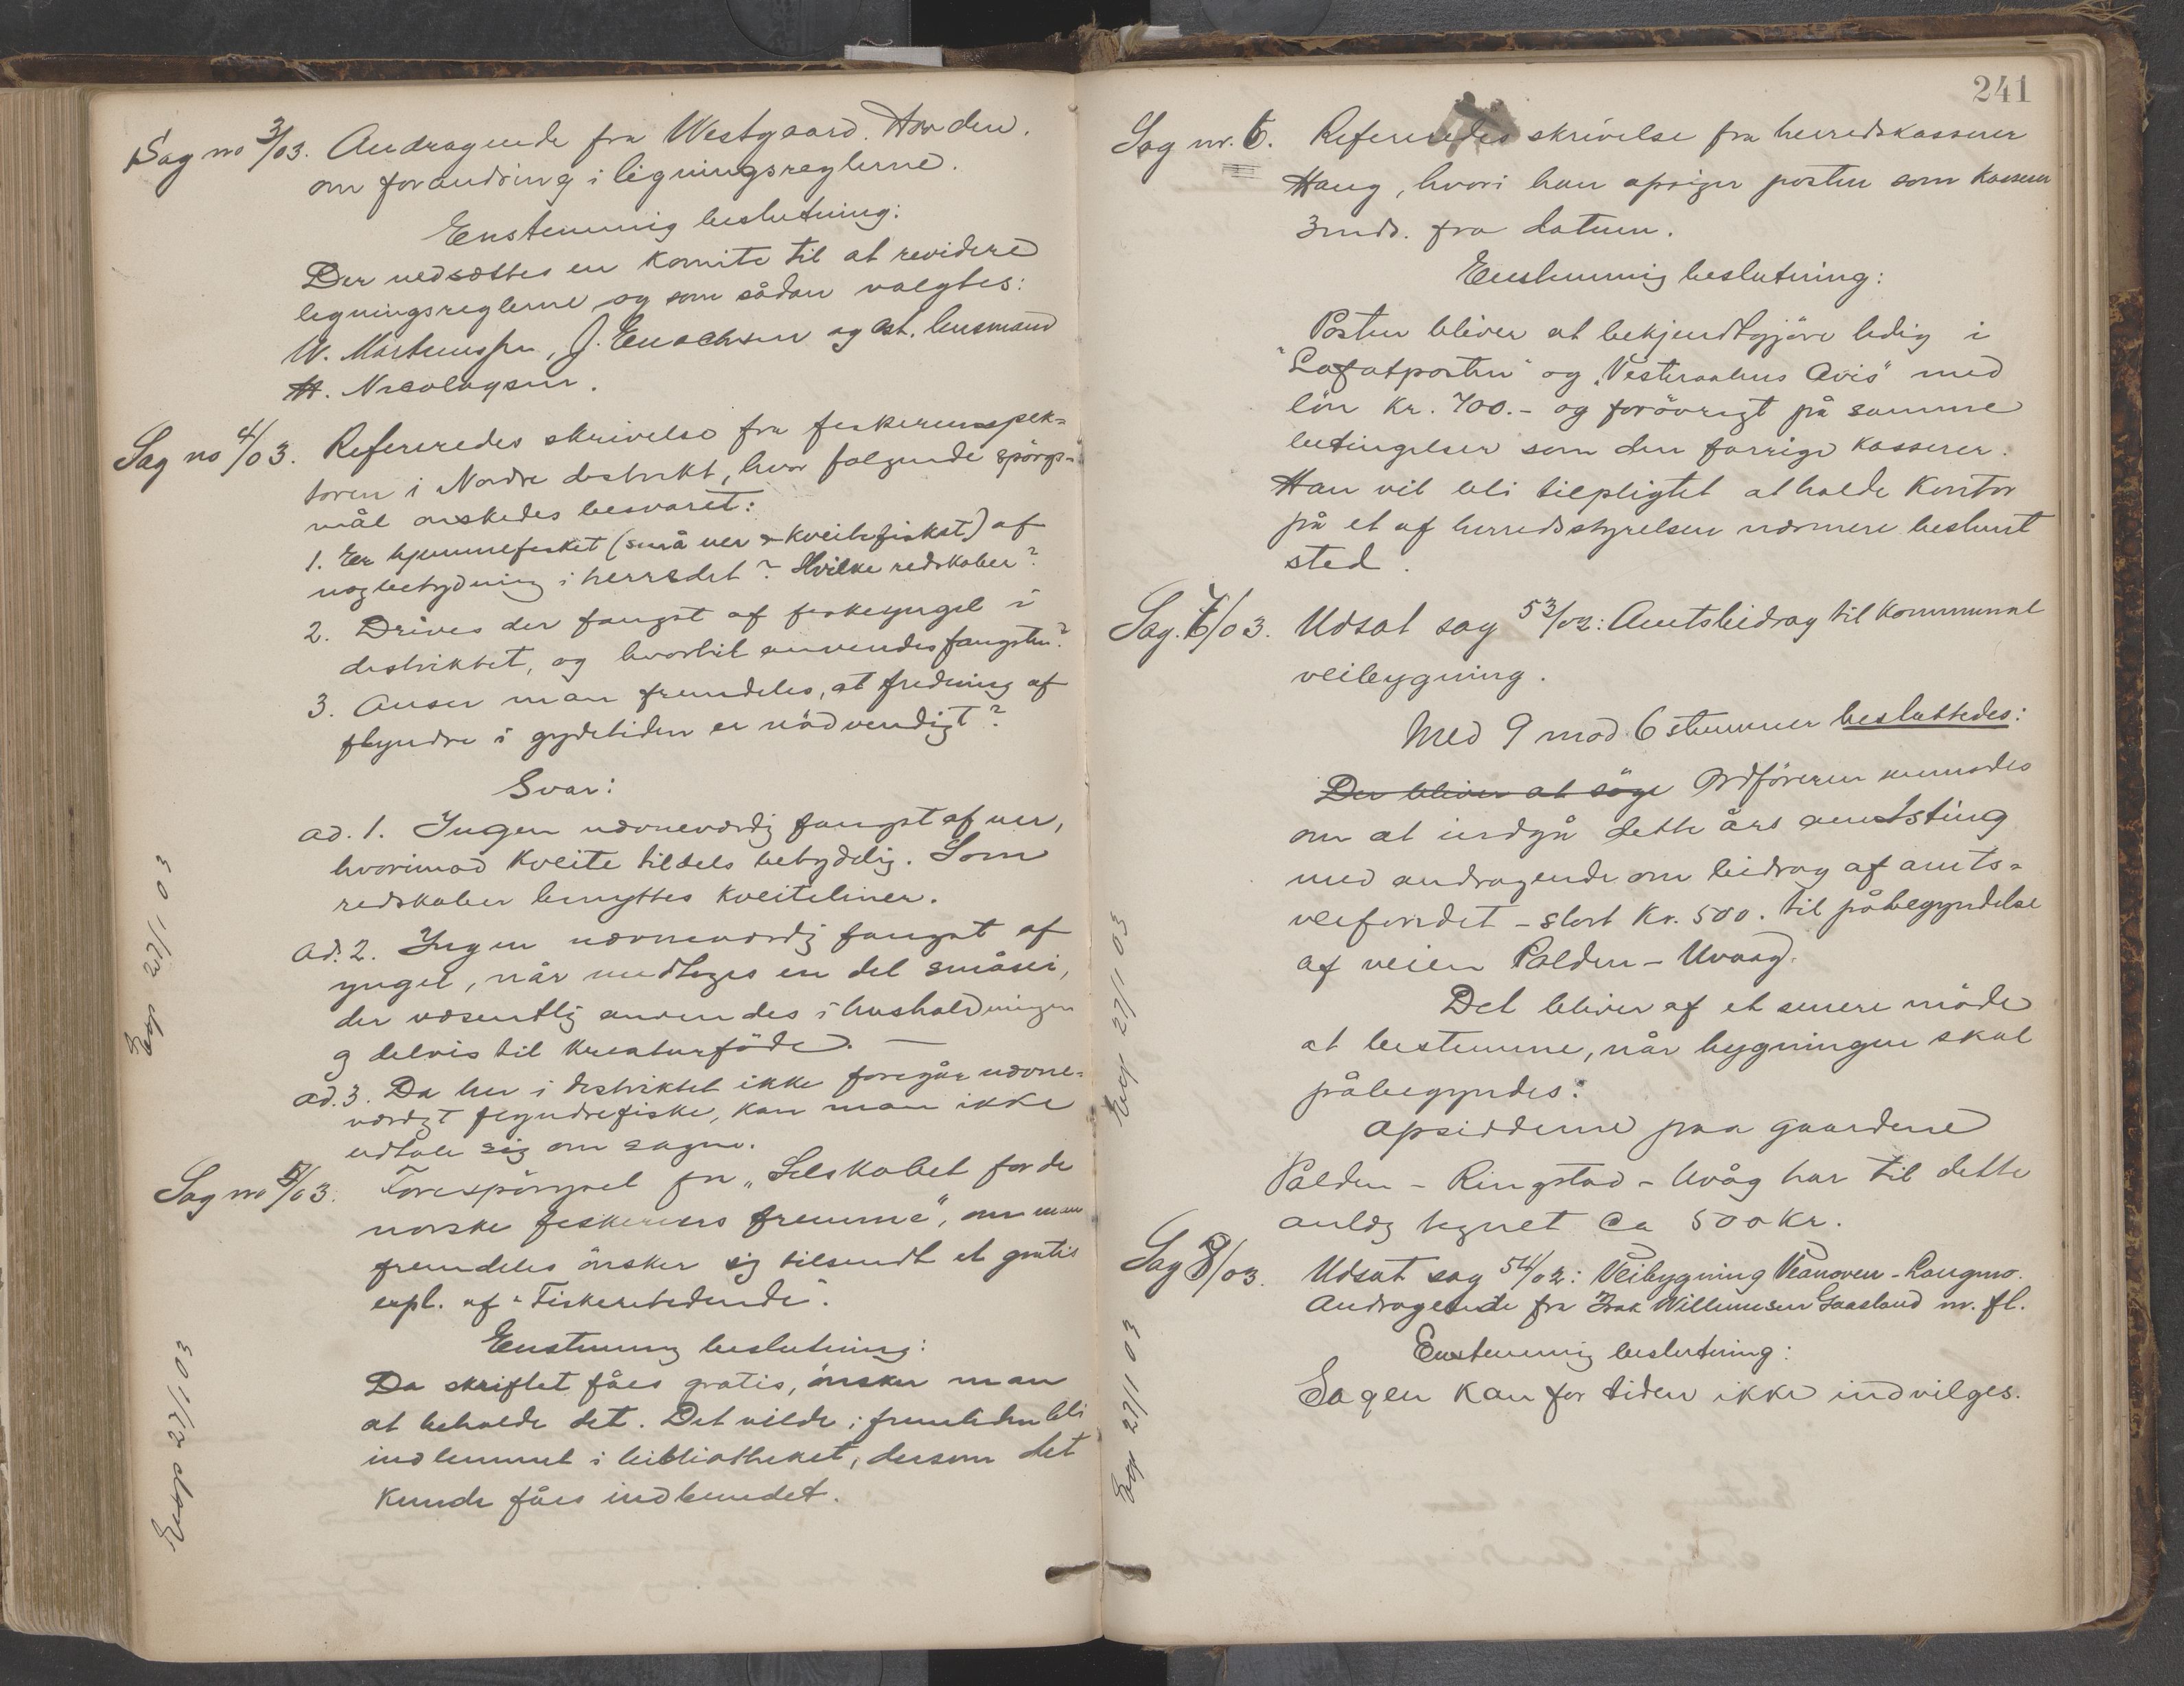 Sag no 3/03. Andragende fra Westgaard.
om forandring i ligningsreglerne.
Enstemmig beslutning:
Der nedsættes en komite til at revidere
ligningsreglerne og som sådan valgtes:
W. Martenssen, J. Enochsen og ast. lensmand
H. Nicolaysen.
Sag no 4/03. Refereredes skrivelse fra fiskeriinspek-
tøren i Nordre distrikt, hvor følgende spörgs-
mål ønskedes besvaret:
1. Er hjemmefisket (små uer & kveitefisket) af
nog betydning i herredet? Hvilke redskaber?
2. Drives der fangst af fiskeyngel i
distriktet, og hvortil anvendes fangsten?
3. Anser man fremdeles, at fredning af
flyndre i gydetiden er nödvendigt?
Svar:
ad. 1. Ingen nævneværdig fangst af uer,
hvorimod kveite tildels betydelig. Som
redskaber benyttes kveiteliner.
ad. 2. Ingen nævneværdig fangst af
yngel, når undtages en del småsei,
der væsentlig anvendes i husholdningen
og delvis til kreaturföde. —
ad. 3. Da her i distriktet ikke foregår nævne-
værdigt flyndrefiske, kan man ikke
udtale sig om sagen.
Exp 27/1 03
Sag no 5/03. Forespörgsel fra "Selskabet for de
norske fiskeriers fremme", om man
fremdeles önsker sig tilsendt et gratis
expl. af "Fiskeritidende".
Enstemmig beslutning:
Da skriftet fåes gratis, önsker man
at beholde det. Det vilde i fremtiden bli
indlemmet i bibliotheket, dersom det
kunde fåes indbundet.
Exp 27/1 03
241
Sag nr. 6. Refereredes skrivelse fra herredskasserer
Haug, hvori han opsiger posten som kasserer
3 mdr. fra datum.
Enstemmig beslutning:
Posten bliver at bekjendtgjöre ledig i
"Lofotposten" og "Vesteraalens Avis" med
lön kr. 700.- og forövrigt på samme
betingelser som den forrige kasserer.
Han vil bli tilpligtet at holde kontor
på et af herredsstyrelsen nærmere bestemt
sted.
Sag. 7/03. Udsat sag 53/02: Amtsbidrag til kommunal
veibygning.
Med 9 mod 6 stemmer besluttedes:
Der bliver at söge Ordföreren anmodes
om at indgå dette års amtsting
med andragende om bidrag af amts-
veifondet - stort kr. 500. til påbegyndelse
af veien Polden - Uvaag.
Det bliver af et senere möde
at bestemme, når bygningen skal
påbegyndes.
Exp 27/1 03
Opsidderne paa gaardene
Polden - Ringstad - Uvåg har til dette
anlæg tegnet ca 500 kr.
Sag 8/03. Udsat sag 54/02: Veibygning - Langmo.
Andragende fra Isak Willumsen Gaasland m. fl.
Enstemmig beslutning:
Sagen kan for tiden ikke indvilges.
Exp 27/1 03